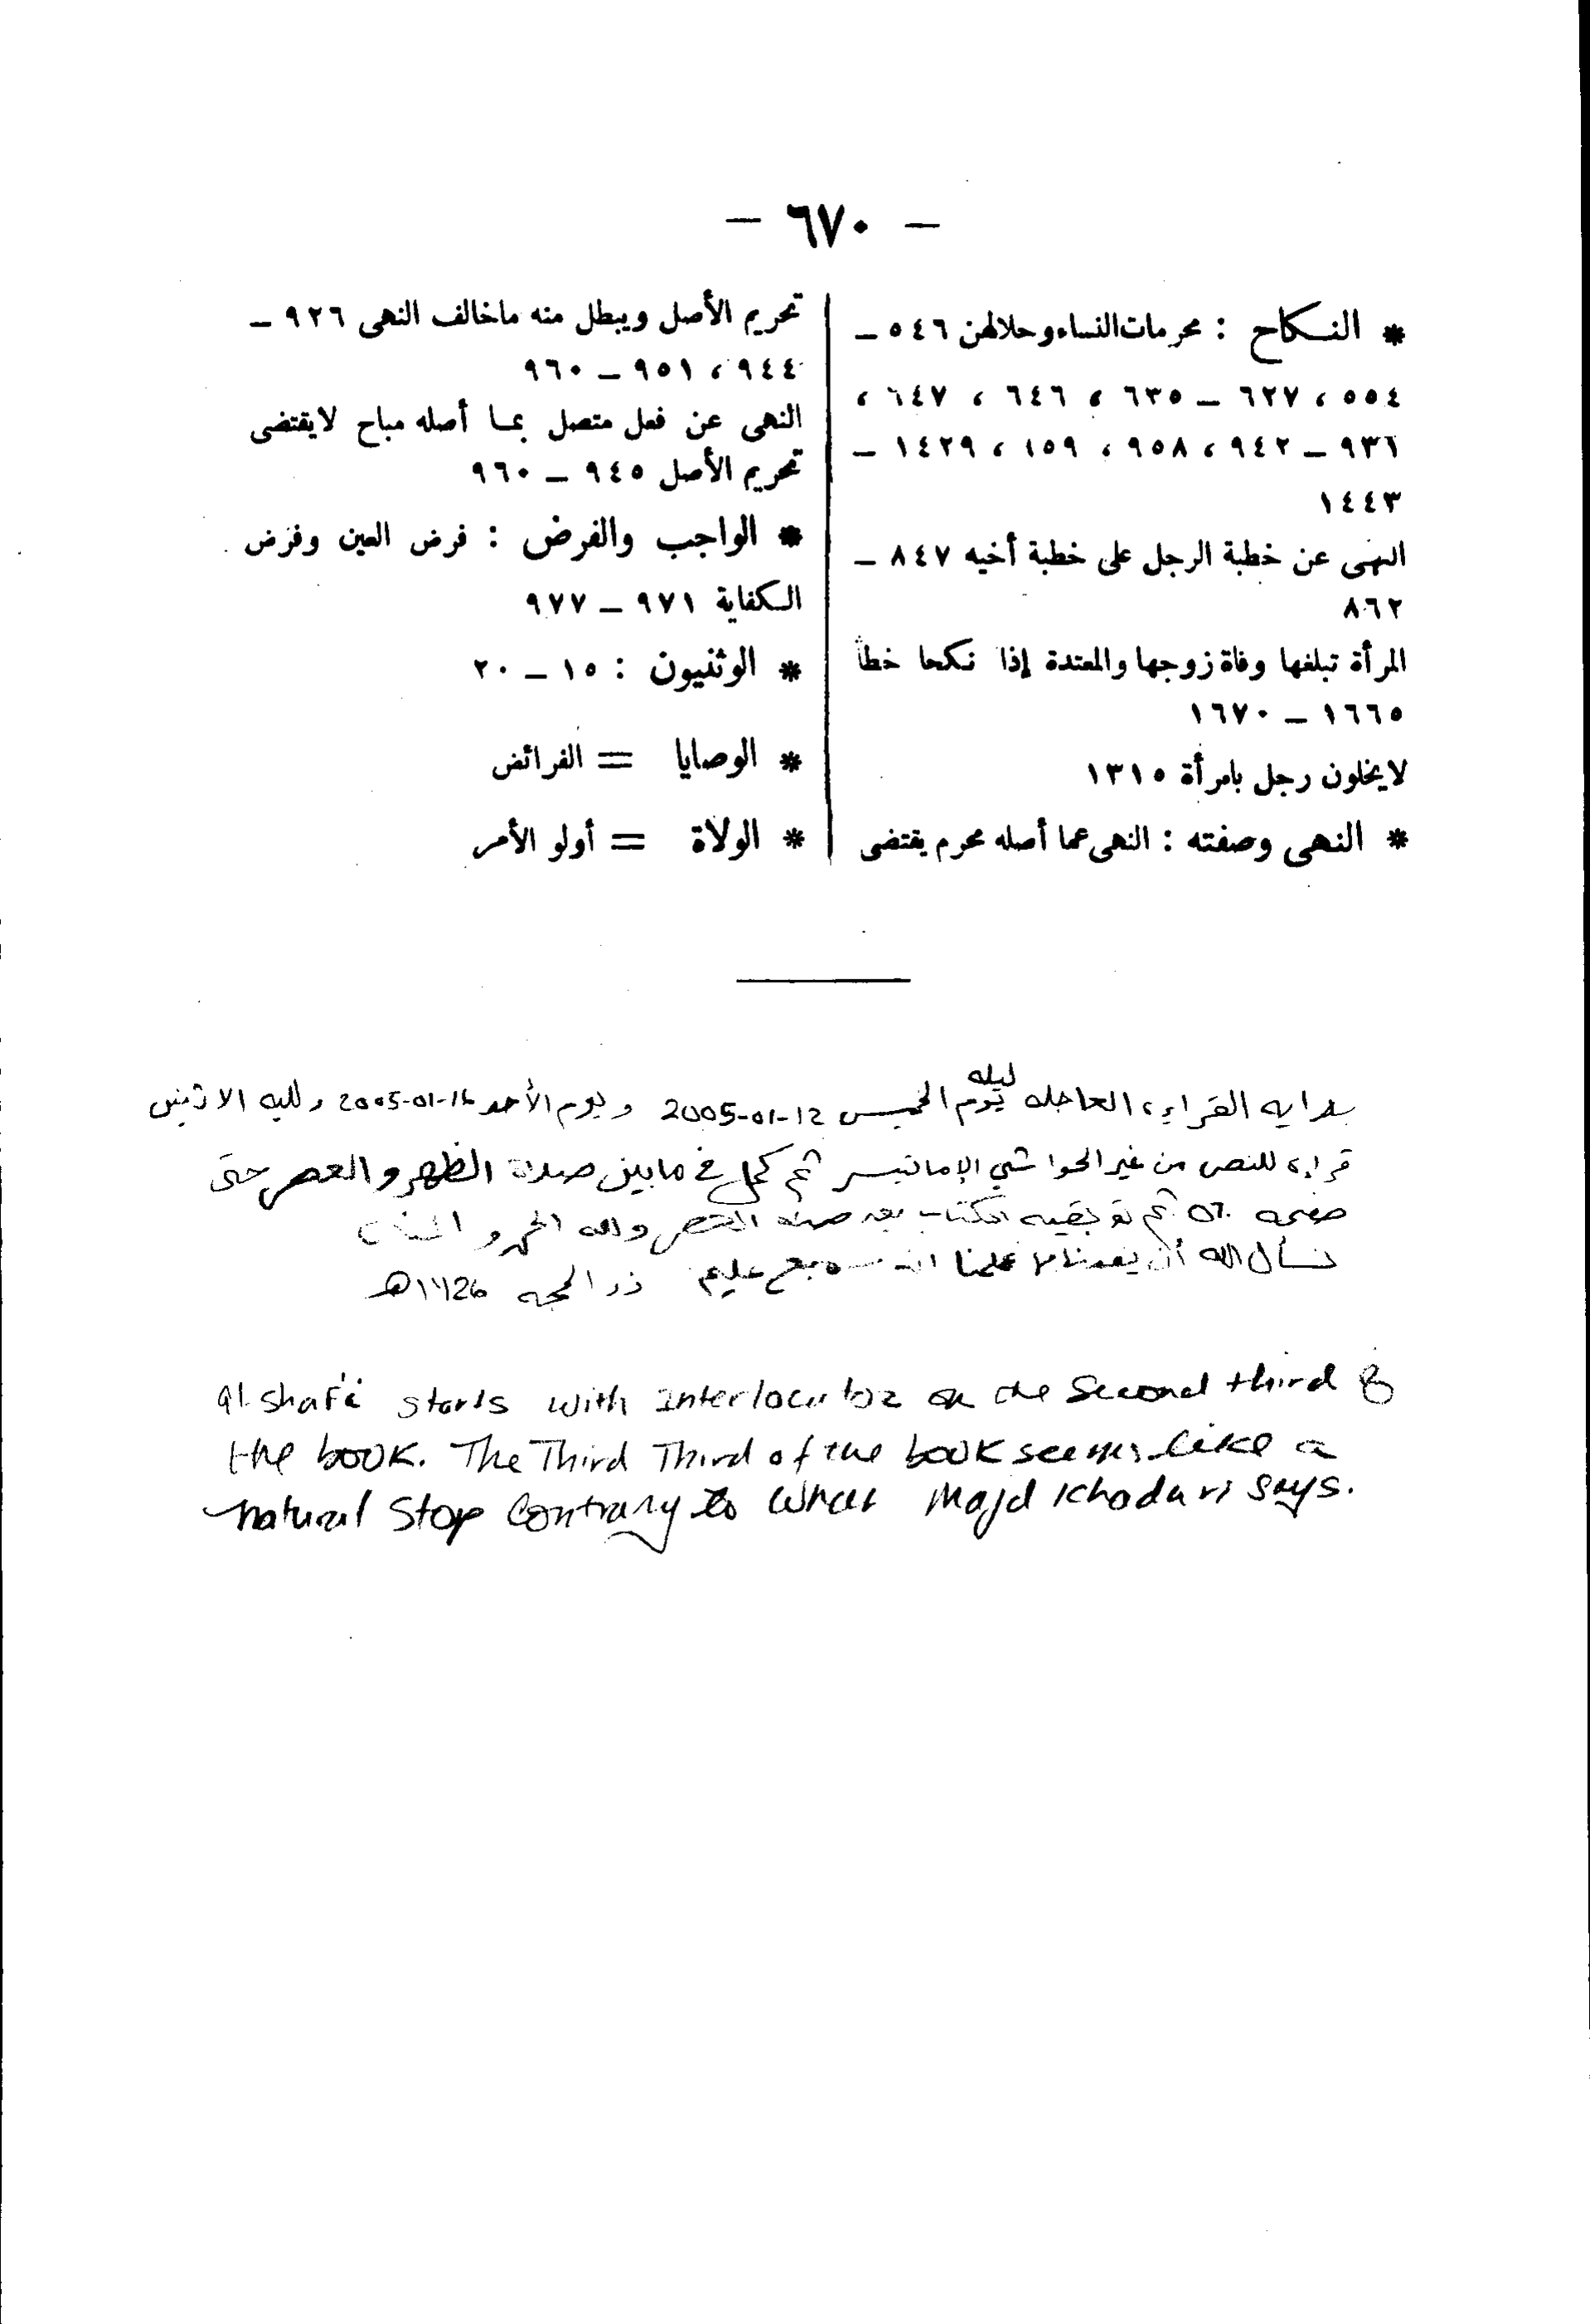 — ٦٧٠ —
* النكاح : محرمات النساء وحلالهن ٥٤٦ —
٥٥٤ ، ٦٢٧ — ٦٣٥ ، ٦٤٦ ، ٦٤٧ ،
٩٣٦ — ٩٤٢ ، ٩٥٨ ، ١٥٩ ، ١٤٢٩ —
١٤٤٣
النهى عن خطبة الرجل على خطبة أخيه ٨٤٧ —
٨٦٢
المرأة تبلغها وفاة زوجها والمعتدة إذا نكحا خطأ
١٦٦٥ — ١٦٧٠
لا يخلون رجل بامرأة ١٣١٥
* النهى وصفته : النهى عما أصله محرم يقتضى
تحريم الأصل ويبطل منه ماخالف النهى ٩٢٦ —
٩٤٤ ، ٩٥١ — ٩٦٠
النهى عن فعل متصل بمـا أصله مباح لايقتضى
تحريم الأصل ٩٤٥ — ٩٦٠
* الواجب والفرض : فرض العين وفرض
الكفاية ٩٧١ — ٩٧٧
* الوثنيون : ١٥ — ٢٠
* الوصايا = الفرائض
* الولاة = أولو الأمر
بدايه القراءه العاجله ليله يوم الخميس 2005-01-12 ويوم الأحد 2005-01-16 وليله الاثنين
قراءه للنص من غير الحواشي الا ماتيسر ثم كمل في مابين صلاة الظهر والعصر حتى
صفحه ٥٦٠ ثم بقيه الكتاب بعد صلاه العصر ولله الحمد و
نسأل الله أن ينفعنا بما علمنا انه سميع عليم ذو الحجه ١٤26هـ
al-shafi'i starts with interlocutor on the second third of
the book. The Third Third of the book seems like a
natural stop contrary to what Majd Khaduri says.